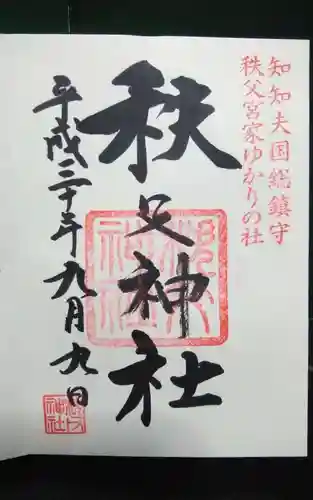 知知夫国総鎮守
秩父宮家ゆかりの社
秩父神社
平成三十年九月九日